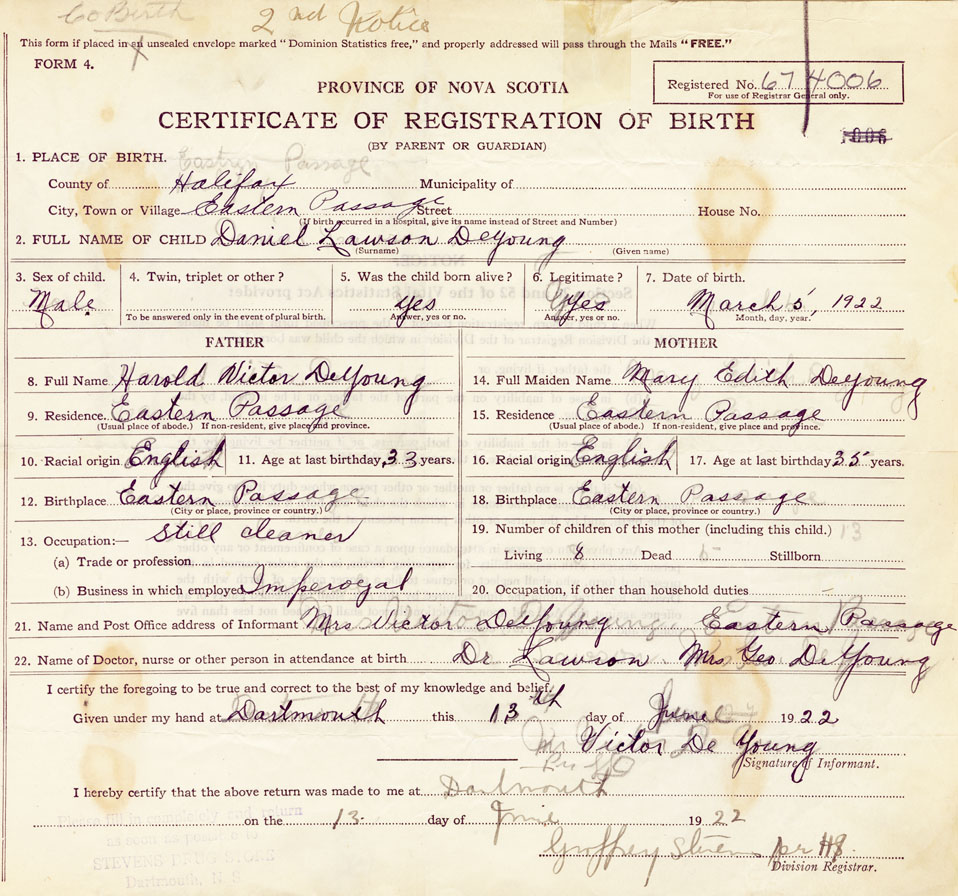 Co Birth 2nd Notice
This form if placed in an unsealed envelope marked "Dominion Statistics free," and properly addressed will pass through the Mails "FREE."
FORM 4.
PROVINCE OF NOVA SCOTIA
Registered No. 67 4006
For use of Registrar General only.
CERTIFICATE OF REGISTRATION OF BIRTH
(BY PARENT OR GUARDIAN)
1. PLACE OF BIRTH. Eastern Passage
County of Halifax Municipality of
City, Town or Village Eastern Passage Street House No.
(If birth occurred in a hospital, give its name instead of Street and Number)
2. FULL NAME OF CHILD Daniel Lawson DeYoung
(Surname) (Given name)
3. Sex of child. 4. Twin, triplet or other? 5. Was the child born alive? 6. Legitimate? 7. Date of birth.
Male. Yes Yes March 5, 1922
To be answered only in the event of plural birth. Answer, yes or no. Answer, yes or no. Month, day, year.
FATHER MOTHER
8. Full Name Harold Victor DeYoung 14. Full Maiden Name Mary Edith DeYoung
9. Residence. Eastern Passage 15. Residence Eastern Passage
(Usual place of abode.) If non-resident, give place and province. (Usual place of abode.) If non-resident, give place and province.
10. Racial origin English 11. Age at last birthday 33 years. 16. Racial origin English 17. Age at last birthday 35 years.
12. Birthplace Eastern Passage 18. Birthplace Eastern Passage
(City or place, province or country.) (City or place, province or country.)
13. Occupation:— Still cleaner 19. Number of children of this mother (including this child.) 13
(a) Trade or profession Living 8 Dead 5 Stillborn
(b) Business in which employed Imperoyal 20. Occupation, if other than household duties
21. Name and Post Office address of Informant Mrs Victor DeYoung Eastern Passage
22. Name of Doctor, nurse or other person in attendance at birth Dr Lawson Mrs Geo DeYoung
I certify the foregoing to be true and correct to the best of my knowledge and belief,
Given under my hand at Dartmouth this 13th day of June 1922
Mr Victor De Young
Signature of Informant.
I hereby certify that the above return was made to me at Dartmouth
on the 13 day of June 1922
Please fill in completely and return
as soon as possible to
STEVENS DRUG STORE
Dartmouth, N. S.
Geoffrey Stevens per HS.
Division Registrar.